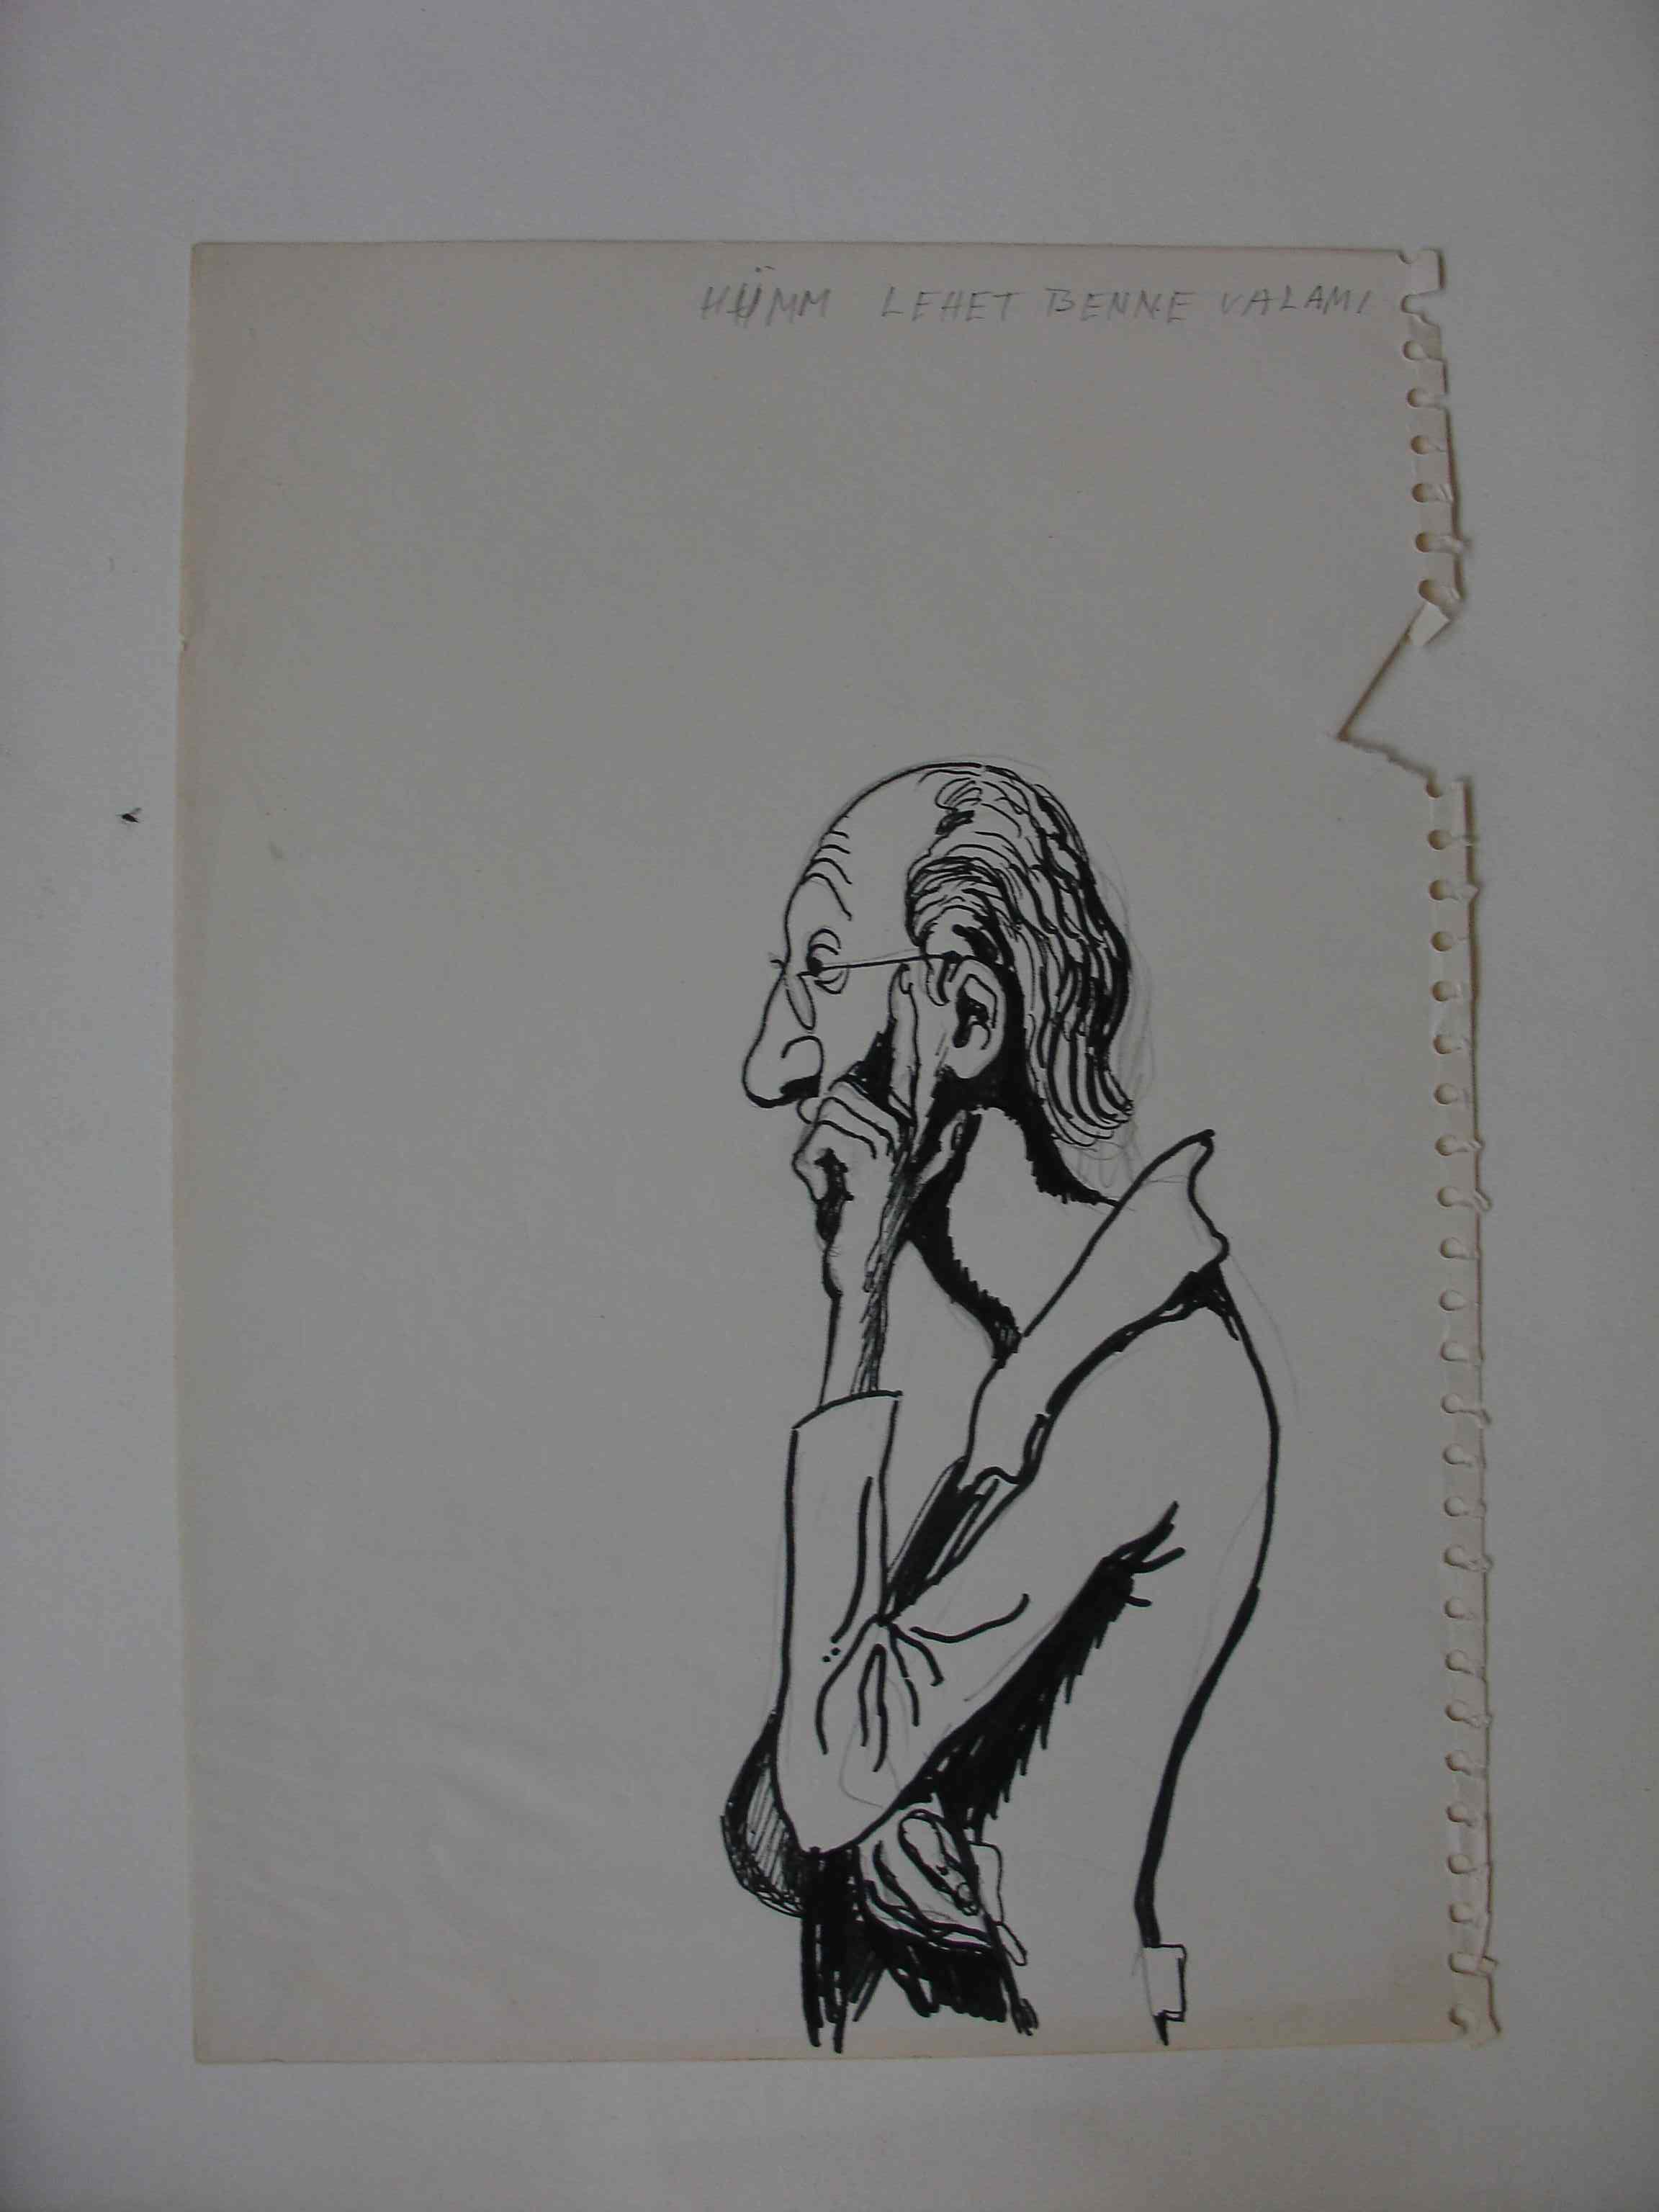 HÜMM LEHET BENNE VALAMI